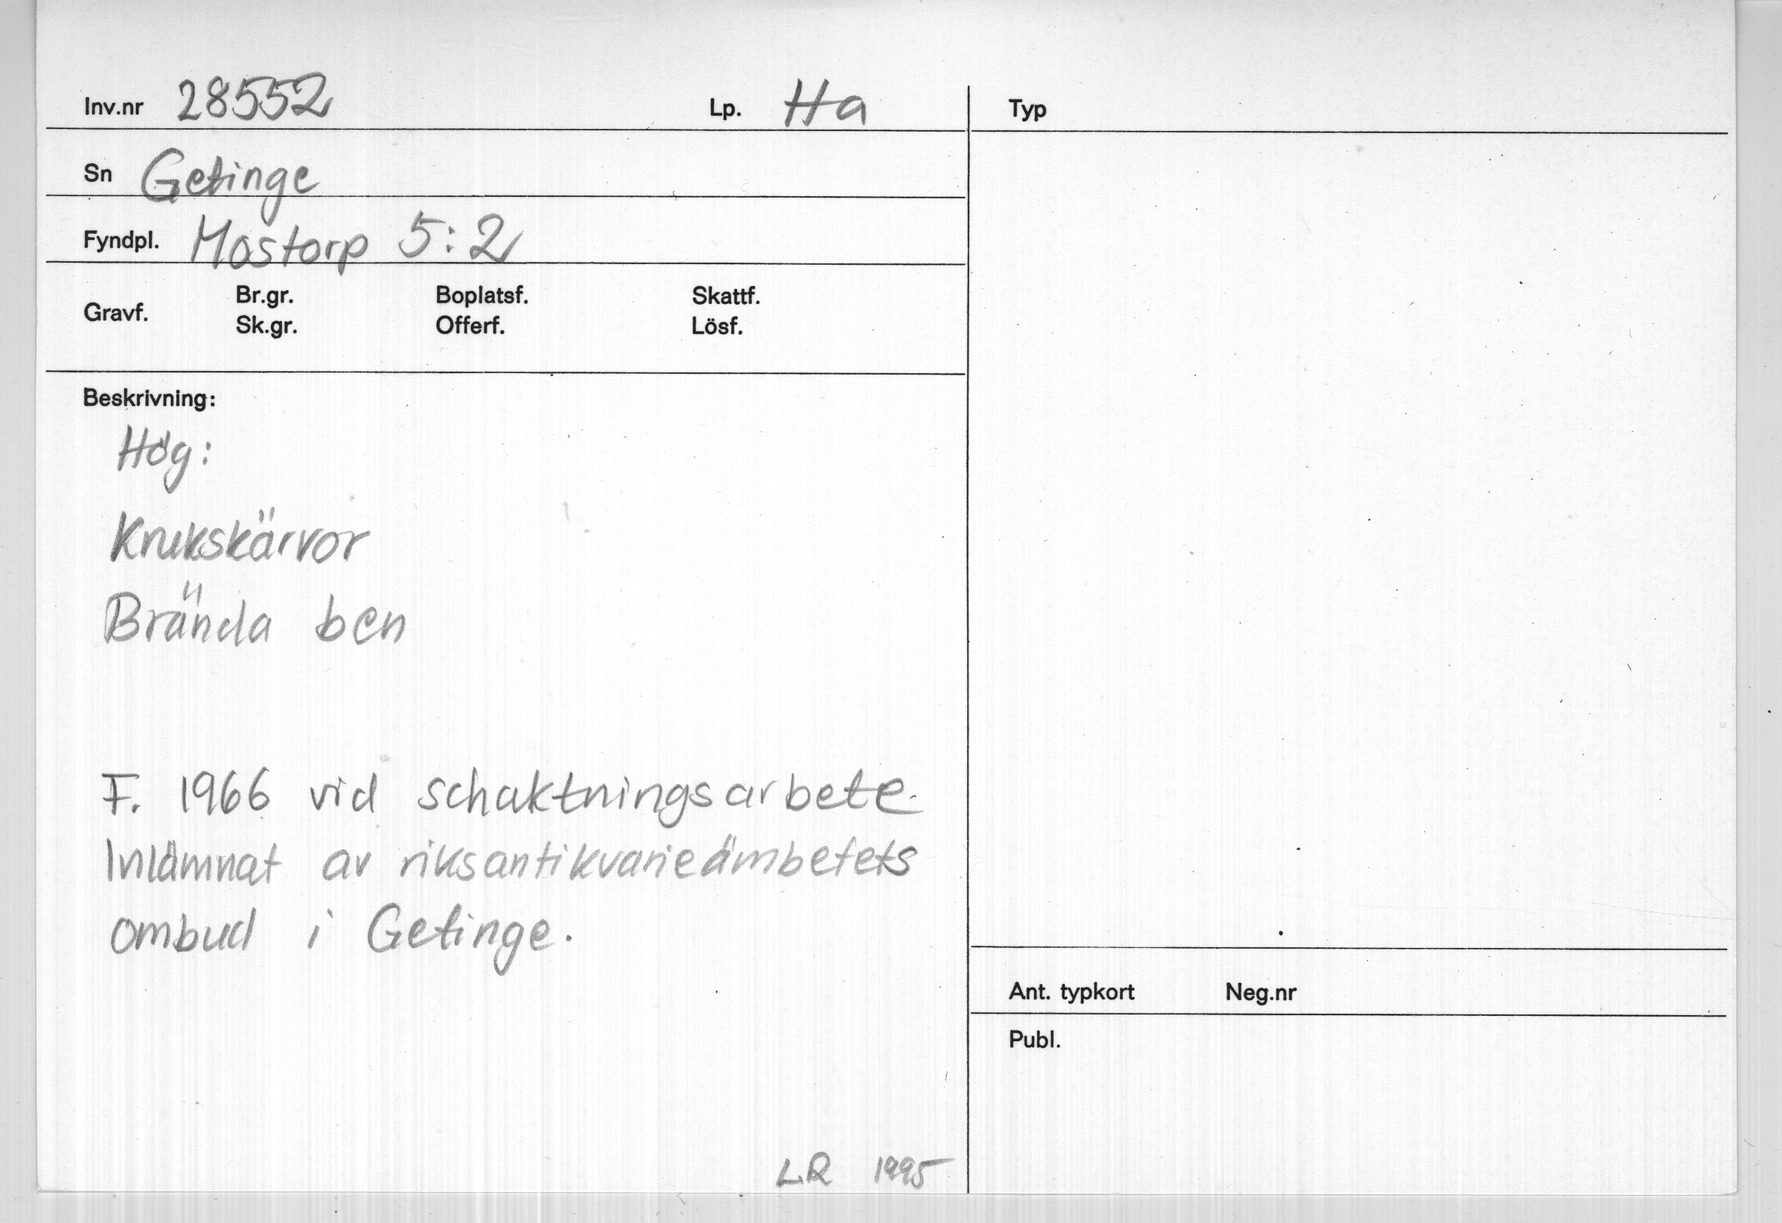 Inv.nr 28552 Lp. Ha
Sn Getinge
Fyndpl. Mostorp 5:2
Gravf. Br.gr. Boplatsf. Skattf.
Sk.gr. Offerf. Lösf.
Beskrivning:
Hög:
Krukskärvor
Brända ben
F. 1966 vid schaktningsarbete.
Inlämnat av riksantikvarieämbetets
ombud i Getinge.
LR 1995
Typ
Ant. typkort Neg.nr
Publ.